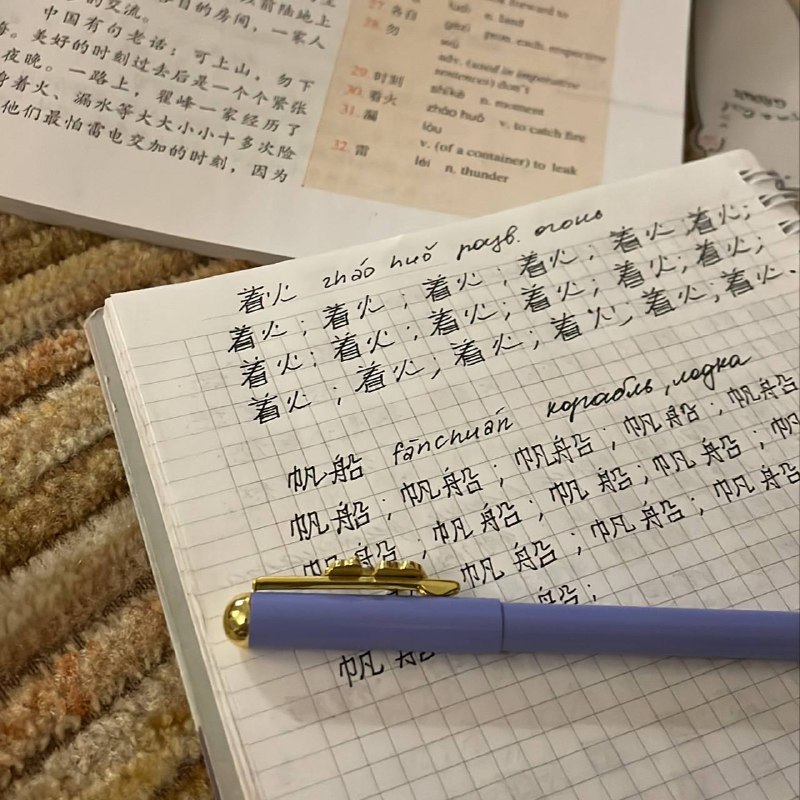 的交流。
自的房间，一家人
以前陆地上
中国有句老话：可上山，勿下
海。美好的时刻过去后是一个个紧张
夜晚。一路上，翟峰一家经历了
着火、漏水等大大小小十多次险
他们最怕雷电交加的时刻，因为
27. 各自
n. land
28. 勿
pron. each, respective
wù
adv. (used in imperative
sentences) don't
29. 时刻 shíkè n. moment
30. 着火 zháo huǒ v. to catch fire
31. 漏 lòu
v. (of a container) to leak
32. 雷 léi n. thunder
着火 zháo huǒ разв. огонь
着火; 着火; 着火; 着火; 着火; 着火;
着火; 着火; 着火; 着火; 着火; 着火;
着火; 着火; 着火; 着火; 着火; 着火.
帆船 fānchuán корабль, лодка
帆船; 帆船; 帆船; 帆船; 帆船
帆船; 帆船; 帆船; 帆船; 帆
帆船; 帆船; 帆船
船;
帆船